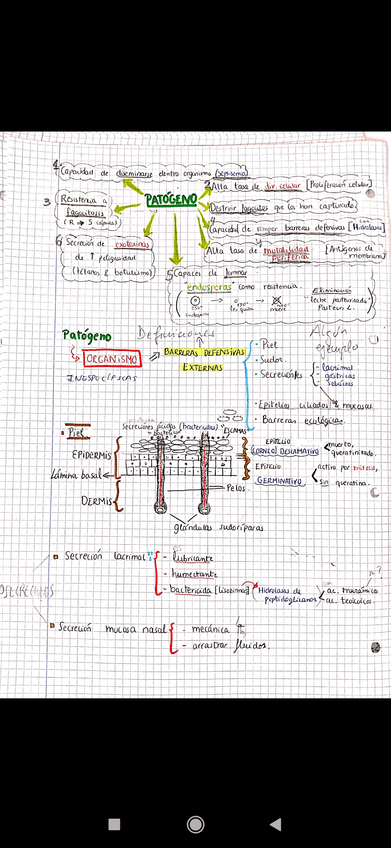 1 Capacidad de diseminarse dentro organismo (sepsemia)
2 Alta tasa de div. celular (Proliferación celular)
3 Resistencia a fagocitosis
(R → S
PATÓGENO
Destruir fagocitos que la han capturado.
Capacidad de romper barreras defensivas (Hidrolasas)
6 Secreción de exotoxinas
de ↑ peligrosidad
(tétanos & botulismo)
Alta tasa de mutabilidad periférica (Antígenos de membrana)
5 Capaces de formar
"endosporas" como resistencia.
"leche pasteurizada"
Pasteur L.
muere
Patógeno
Definiciones
Algún ejemplo
ORGANISMO ⇒ BARRERAS DEFENSIVAS EXTERNAS
INESPECÍFICAS
- Piel
- Sudor.
- Secreciones
- lacrimal
- gástricas
- Epitelios ciliados → mucosas
- Barreras ecológicas.
Piel
Secreciones ácidas (bactericidas)
ESCAMAS
EPIDERMIS
Lámina basal
DERMIS
Pelos
glándulas sudoríparas
EPITELIO CÓRNEO DESCAMATIVO
muerto, queratinizado.
EPITELIO GERMINATIVO
activo por mitosis,
sin queratina.
Secreción lacrimal
- lubricante
- humectante
- bactericida (lisozima)
Hidrolasas de peptidoglicanos
ac. murámico
ac. teitoicos
?
Secreción mucosa nasal
- mecánica
- arrastrar fluidos.